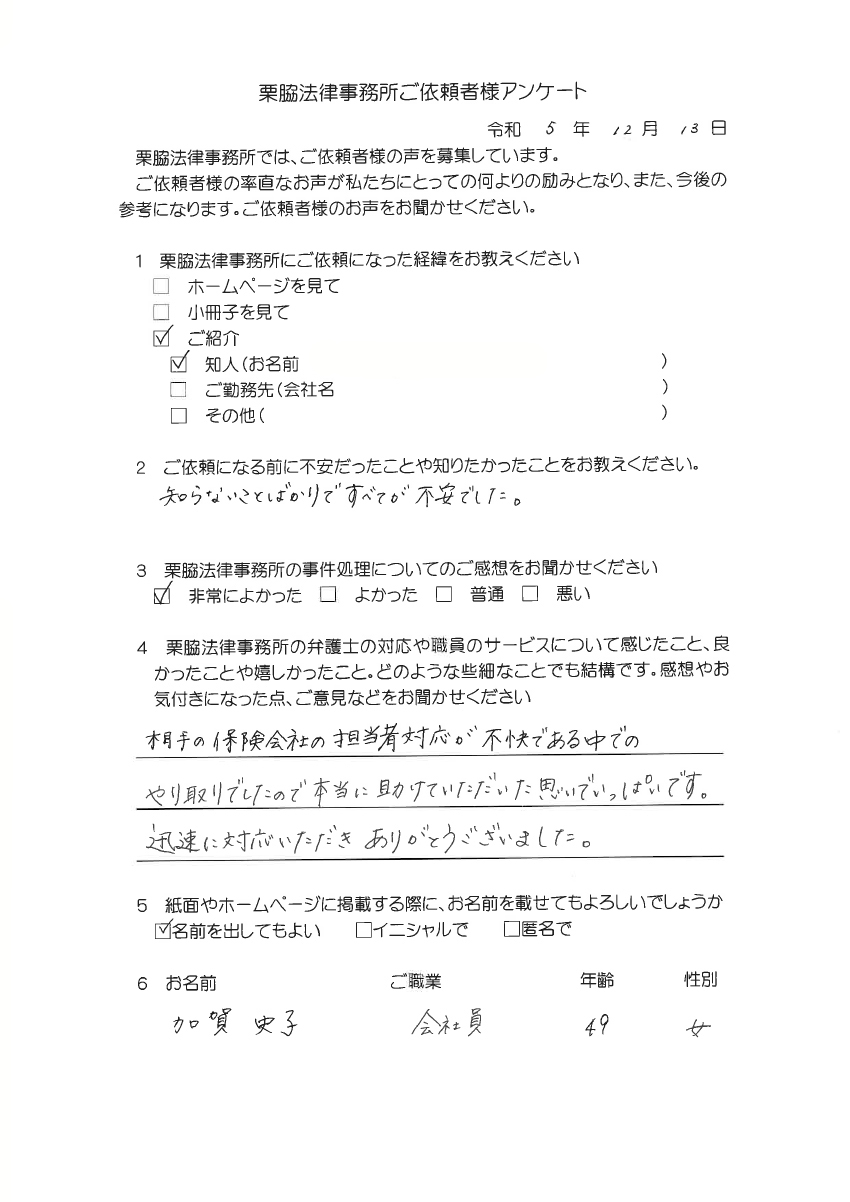 栗脇法律事務所ご依頼者様アンケート
令和 5 年 12 月 13 日
栗脇法律事務所では、ご依頼者様の声を募集しています。
ご依頼者様の率直なお声が私たちにとっての何よりの励みとなり、また、今後の
参考になります。ご依頼者様のお声をお聞かせください。
1 栗脇法律事務所にご依頼になった経緯をお教えください
□ ホームページを見て
□ 小冊子を見て
☑ ご紹介
☑ 知人(お名前 )
□ ご勤務先(会社名 )
□ その他( )
2 ご依頼になる前に不安だったことや知りたかったことをお教えください。
知らないことばかりですべてが不安でした。
3 栗脇法律事務所の事件処理についてのご感想をお聞かせください
☑ 非常によかった □ よかった □ 普通 □ 悪い
4 栗脇法律事務所の弁護士の対応や職員のサービスについて感じたこと、良
かったことや嬉しかったこと。どのような些細なことでも結構です。感想やお
気付きになった点、ご意見などをお聞かせください
相手の保険会社の担当者対応が不快である中での
やり取りでしたので本当に助けていただいた思いでいっぱいです。
迅速に対応いただきありがとうございました。
5 紙面やホームページに掲載する際に、お名前を載せてもよろしいでしょうか
☑名前を出してもよい □イニシャルで □匿名で
6 お名前 ご職業 年齢 性別
加賀 史子 会社員 49 女